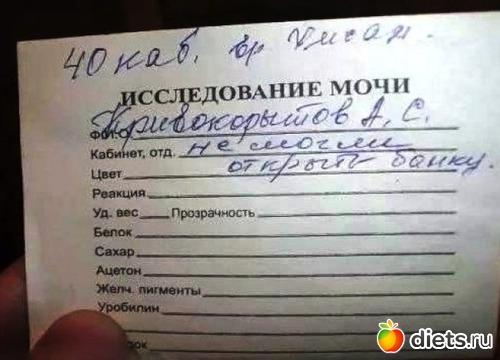 40 каб. вр
ИССЛЕДОВАНИЕ МОЧИ
Кривокорытов А. С.
Кабинет, отд. не могли
Цвет открыть банку.
Реакция
Уд. вес Прозрачность
Белок
Сахар
Ацетон
Желч. пигменты
Уробилин
diets.ru